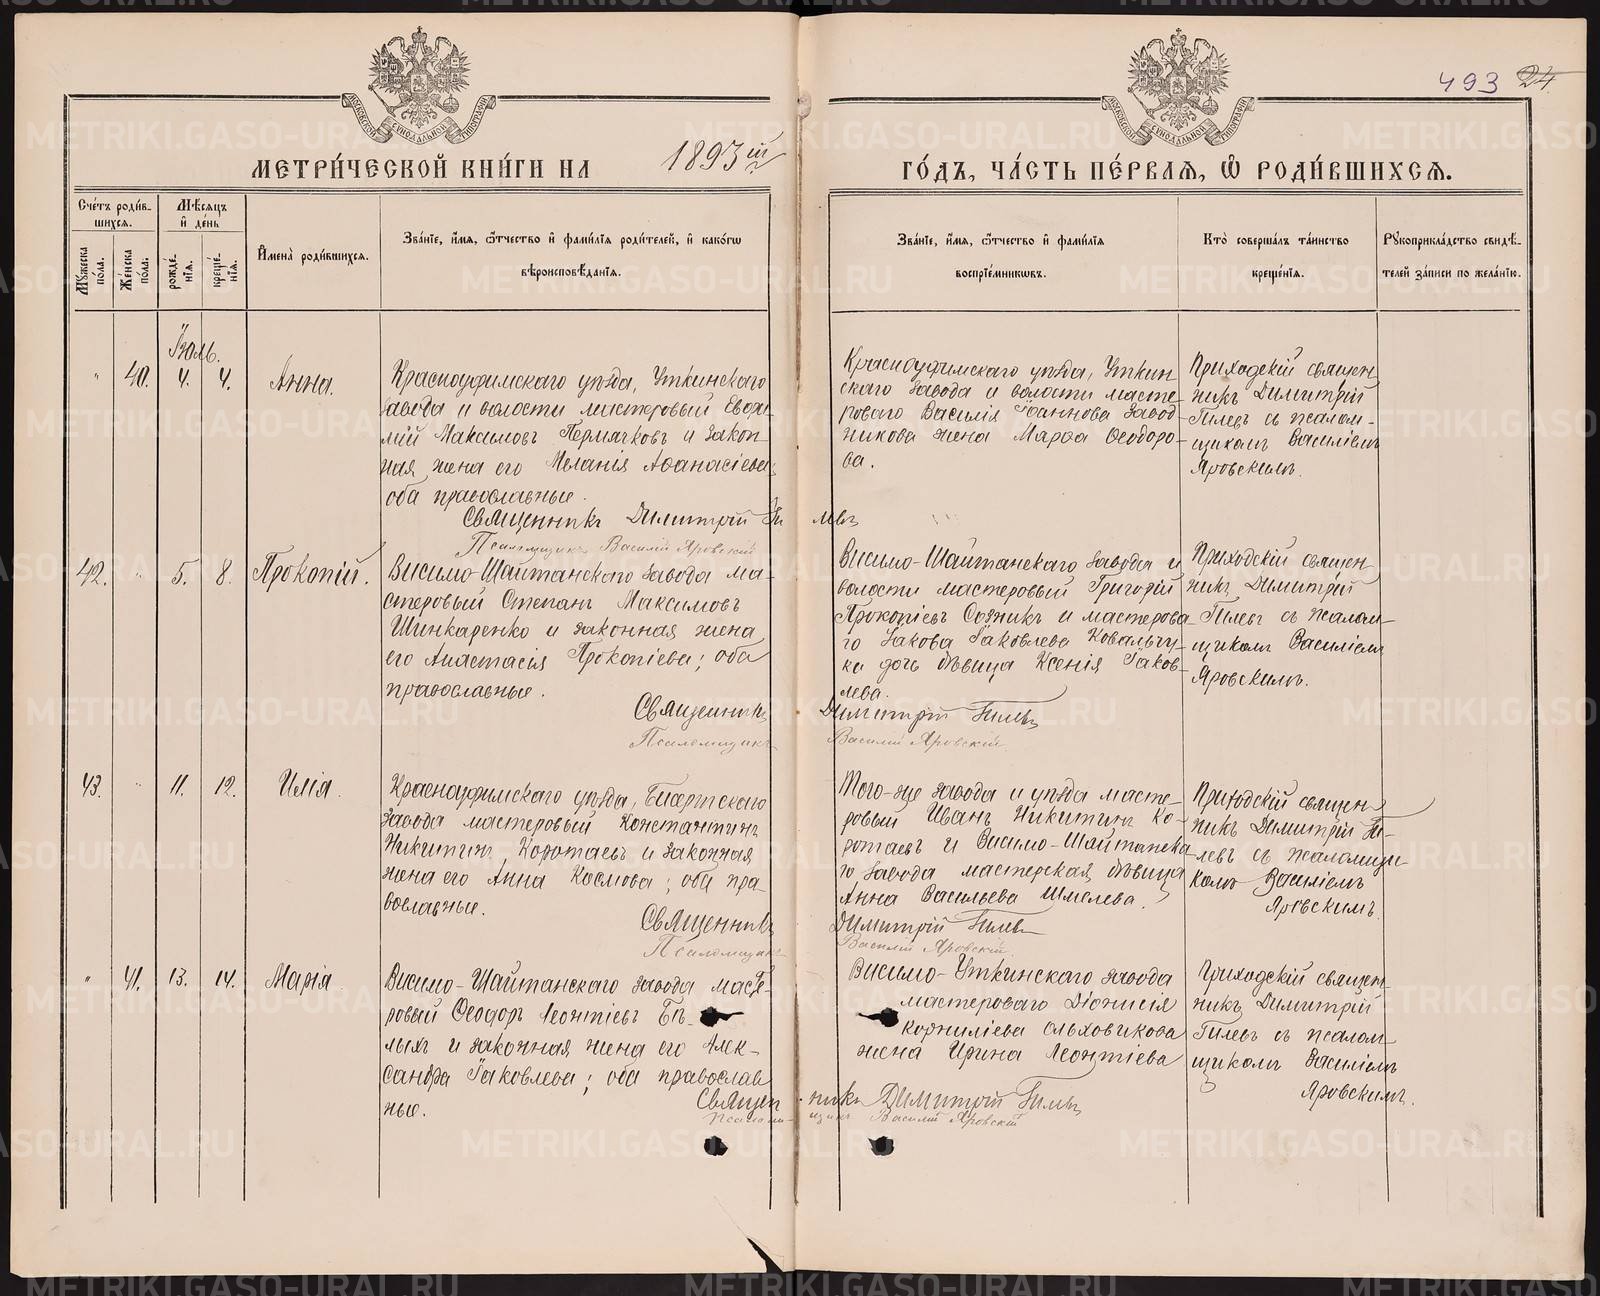 493 24
МОСКОВСКОЙ СѴНОДАЛЬНОЙ ТИПОГРАФІИ
МОСКОВСКОЙ СѴНОДАЛЬНОЙ ТИПОГРАФІИ
МЕТРИ́ЧЕСКОЙ КНИ́ГИ НА 1893й
ГО́ДЪ, ЧА́СТЬ ПЕ́РВАѦ, Ѽ РОДИ́ВШИХСѦ.
Сче́тъ роди́в-
шихсѧ.
Мꙋ́жеска по́ла.
Же́нска по́ла.
Мѣ́сѧцъ
и҆ де́нь
рожде́-
нїѧ.
креще́-
нїѧ.
И҆мена̀ роди́вшихсѧ.
Зва́нїе, и҆́мѧ, ѻ҆́тчество и҆ фами́лїѧ роди́телей, и҆ како́гѡ
вѣроисповѣ́данїѧ.
Зва́нїе, и҆́мѧ, ѻ҆́тчество и҆ фами́лїѧ
воспрїе́мникѡвъ.
Кто̀ соверша́лъ та́инство
креще́нїѧ.
Рꙋкоприкла́дство свидѣ́-
телей за́писи по жела́нїю.
Іюль.
" 40. 4. 4. Анна.
Красноуфимскаго уѣзда, Уткинскаго
завода и волости мастеровый Евфи-
мій Максимовъ Пермяковъ и закон
ная жена его Меланія Афанасіева
оба православные.
Священникъ Димитрій Ги левъ
Псаломщикъ Василій Яровскій
Красноуфимскаго уѣзда, Уткин
скаго завода и волости масте-
роваго Василія Іоаннова Завод-
никова жена Марфа Феодоро-
ва.
Приходскій священ
никъ Димитрій
Гилевъ съ псалом-
щикомъ Василіемъ
Яровскимъ.
42. " 5. 8. Прокопій.
Висимо-Шайтанскаго завода ма-
стеровый Степанъ Максимовъ
Шинкаренко и законная жена
его Анастасія Прокопіева; оба
православные.
Священникъ Димитрій Гилевъ
Псаломщикъ Василій Яровскій
Висимо-Шайтанскаго завода и
волости мастеровый Григорій
Прокопіевъ Созникъ и мастерова
го Іакова Іаковлева Ковальчу-
ка дочь дѣвица Ксенія Іаков-
лева.
Приходскій священ
никъ Димитрій
Гилевъ съ псалом-
щикомъ Василіемъ
Яровскимъ.
43. " 11. 12. Илія.
Красноуфимскаго уѣзда, Бисертскаго
завода мастеровый Константинъ
Никитинъ Коротаевъ и законная
жена его Анна Космова; оба пра-
вославные.
Священникъ Димитрій Гилевъ
Псаломщикъ Василій Яровскій
Того-же завода и уѣзда масте-
ровый Иванъ Никитинъ Ко-
ротаевъ и Висимо-Шайтанска
го завода мастерская дѣвица
Анна Васильева Шмелева.
Приходскій священ
никъ Димитрій Ги-
левъ съ псаломщи-
комъ Василіемъ
Яровскимъ.
" 41. 13. 14. Марія.
Висимо-Шайтанскаго завода масте-
ровый Феодоръ Леонтіевъ Бѣ-
лыхъ и законная жена его Алек-
сандра Іаковлева; оба православ
ные.
Священ никъ Димитрій Гилевъ
Псалом щикъ Василій Яровскій
Висимо-Уткинскаго завода
мастероваго Діонисія
Корниліева Ольховикова
жена Ирина Леонтіева
Приходскій священ
никъ Димитрій
Гилевъ съ псалом
щикомъ Василіемъ
Яровскимъ.
METRIKI.GASO-URAL.RU